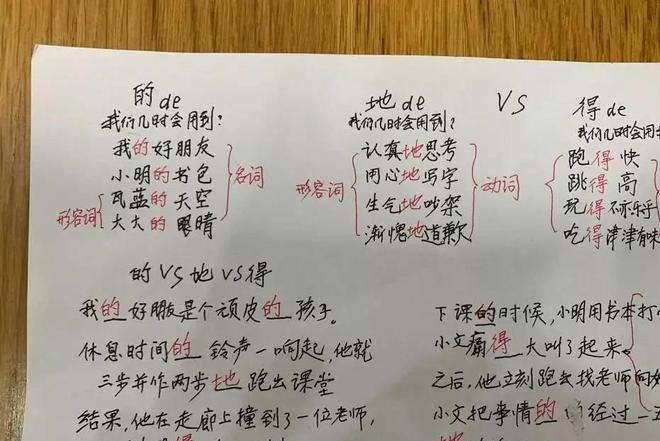 的 de
我们几时会用到?
我的好朋友
小明的书包
瓦蓝的天空
大大的眼睛
形容词
名词
地 de
我们几时会用到?
认真地思考
用心地写字
生气地吵架
惭愧地道歉
形容词
动词
VS
得 de
我们几时会用
跑得快
跳得高
玩得不亦乐乎
吃得津津有味
的 VS 地 VS 得
我的好朋友是个顽皮的孩子。
休息时间的铃声一响起,他就
三步并作两步地跑出课堂
结果,他在走廊上撞到了一位老师,
下课的时候,小明用书本打
小文痛得大叫了起来。
之后,他立刻跑去找老师
小文把事情的 经过一